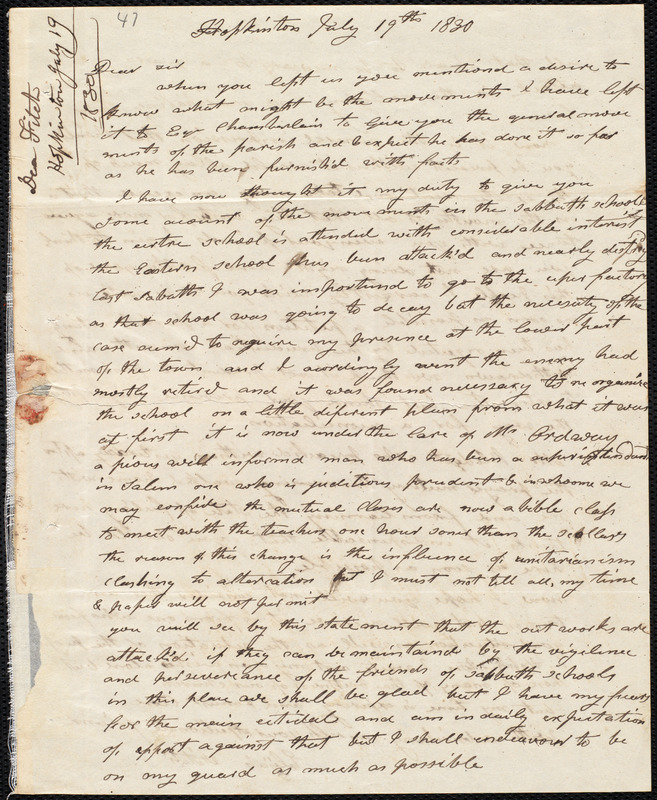 47
Dea Fitch
Hopkinton July 19
1830
Hopkinton July 19th 1830
Dear sir
when you left us you mentioned a desire to
know what might be the movements I have left
it to Esqr Chamberlain to give you the general move
ments of the parish and expect he has done it so far
as he has been furnish'd with facts
I have now thought it my duty to give you
some acount of the movements in the sabbath schools
the centre school is attended with considerable interest
the Eastern school has been attack'd and nearly destroy
last sabath I was importund to go to the uper factory
as that school was going to decay but the necesity of the
case seem'd to require my presence at the lower part
of the town and I acordingly went the enemy had
mostly retired and it was found necessary to re organise
the school on a little diferent plan from what it was
at first it is now under the Care of Mr Ordway
a pious well informd man who has been a superintendant
in Salem one who is juditious prudent & in whoome we
may confide the mutual Clases are now a bible class
to meet with the teachers one hour soner than the scollars
the reason of this change is the influence of unitarianism
clashing to altercation but I must not tell all, my time
& paper will not permit
you will see by this statement that the out works are
attack'd. if they can be maintaind by the vigilence
and perseverance of the friends of sabbath schools
in this place we shall be glad but I have my fears
for the main citidal and am in daily expectation
of against that but I shall endeavour to be
on my guard as much as possible